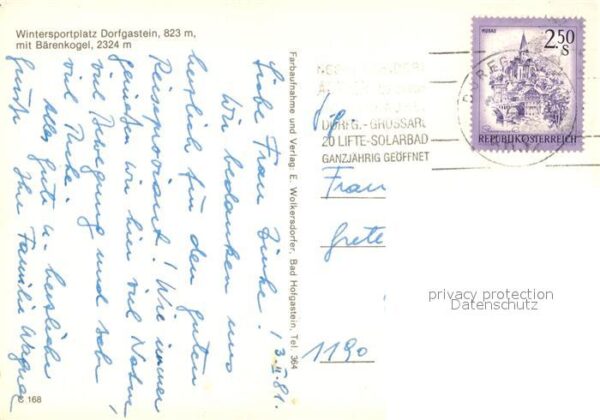 Wintersportplatz Dorfgastein, 823 m,
mit Bärenkogel, 2324 m
Liebe Frau Zinke! 13.II.81.
Wir bedanken uns
herzlich für den guten
Reiseproviant! Wie immer
genießen wir hier viel Natur,
viel Bewegung und sehr
viel Ruhe.
Alles Gute u. herzliche
Grüße Ihre Familie Wagner
C 168
Farbaufnahme und Verlag: E. Wolkersdorfer, Bad Hofgastein, Tel. 364
DORFG.-GROSSARL
20 LIFTE-SOLARBAD
GANZJÄHRIG GEÖFFNET
2.50
S
REPUBLIK ÖSTERREICH
Frau
Grete
1190
privacy protection
Datenschutz